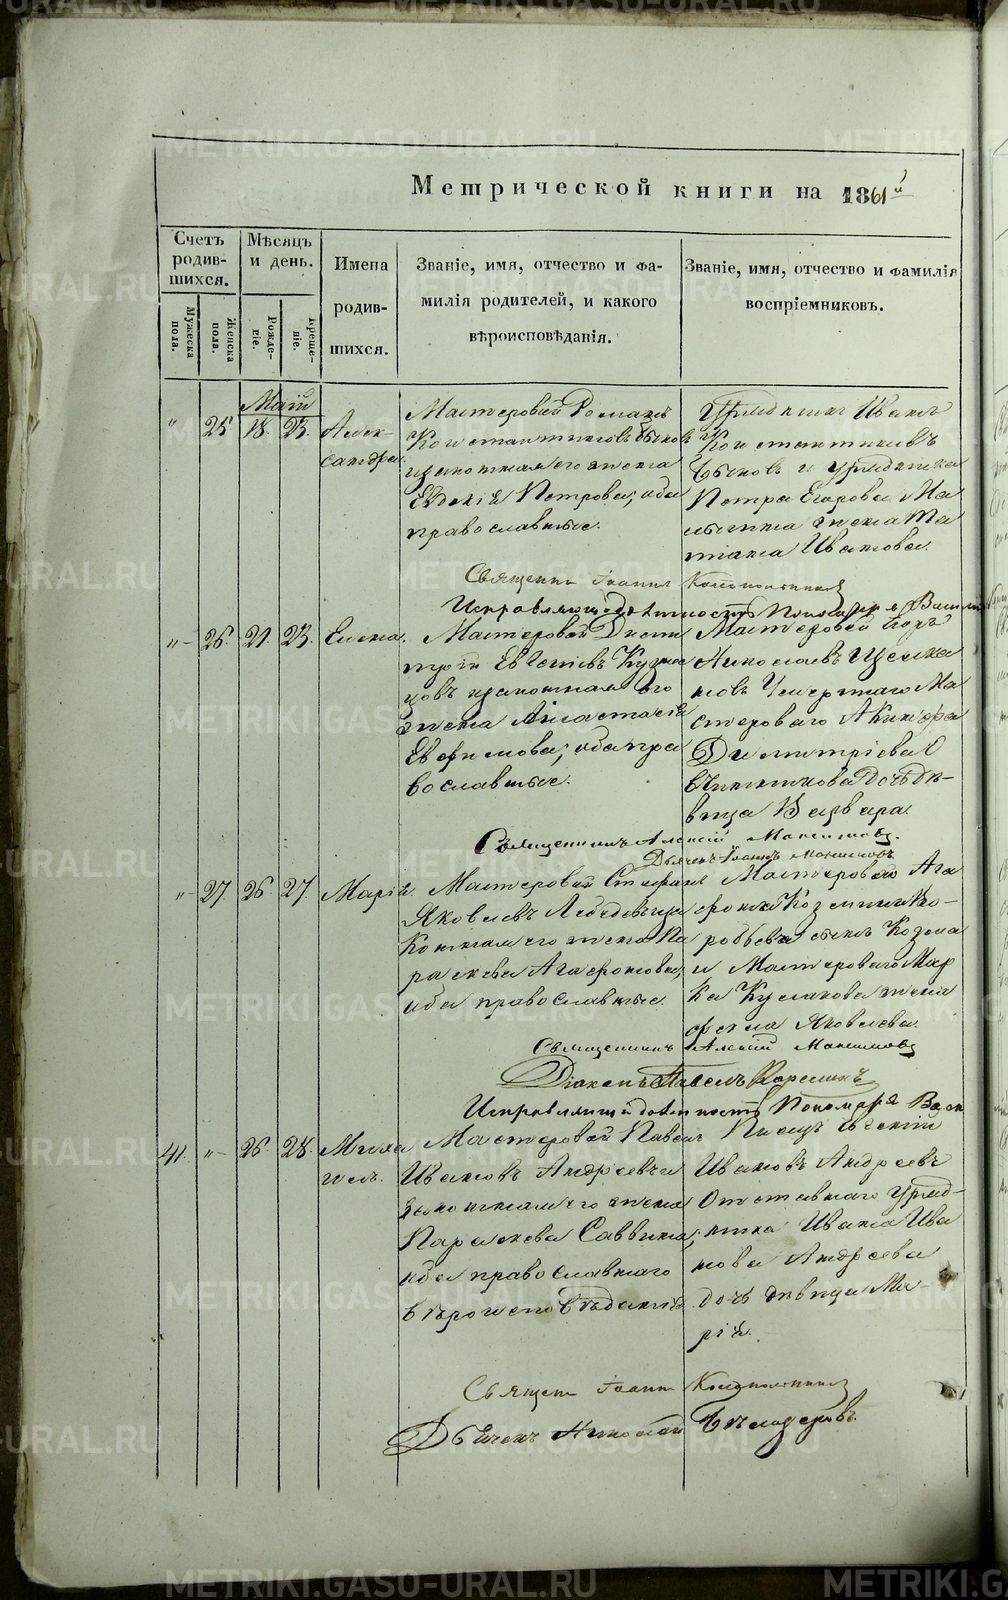 METRIKI.GASO-URAL.RU
Метрической книги на 1861й
Счетъ родившихся.
Мужеска пола.
Женска пола.
Мѣсяцъ и день.
Рожденіе.
Крещеніе.
Имена родившихся.
Званіе, имя, отчество и фамилія родителей, и какого вѣроисповѣданія.
Званіе, имя, отчество и фамилія воспріемниковъ.
Маій
" 25 18. 23. Алек-
сандра.
Мастеровой Романъ
Константиновъ Быковъ
и законная его жена
Евдокія Петрова, оба
православные.
Урядникъ Иванъ
Константиновъ
Быковъ и урядника
Петра Егорова
жена Та
тіана Иванова.
Священникъ Іоаннъ
Исправляющій должность Пономаря
"- 26. 21. 23. Елена.
Мастеровой Дими
трій Евгеніевъ Кузне
цовъ и законная его
жена Анастасія
Евфимова, оба пра
вославные.
Мастеровой
Николаевъ
Мастероваго
Димитріева
дочь дѣ-
вица Варвара.
Священникъ Алексій Максимовъ.
Дьячекъ Іоаннъ Максимовъ
"- 27. 26. 27. Марія.
Мастеровой Стефанъ
Яковлевъ Лебедевъ и за
конная его жена Па
раскева Агафонова,
оба православные.
Мастероваго Ага
фона Козмина Во-
робьева сынъ Козма
и Мастероваго Мар
ка Кулакова жена
Фекла Яковлева.
Священникъ Алексій Максимовъ
Діаконъ Павелъ
Исправляющій должность Пономаря
41. "- 26. 28. Миха
илъ.
Мастеровой Павелъ
Ивановъ Андреевъ и
законная его жена
Параскева Саввина,
оба православнаго
вѣроисповѣданія.
Писецъ Евгеній
Ивановъ Андреевъ
Отставнаго уряд-
ника Ивана Ива
нова Андреева
дочь дѣвица Ма-
рія.
Священникъ Іоаннъ
Дьячекъ Николай